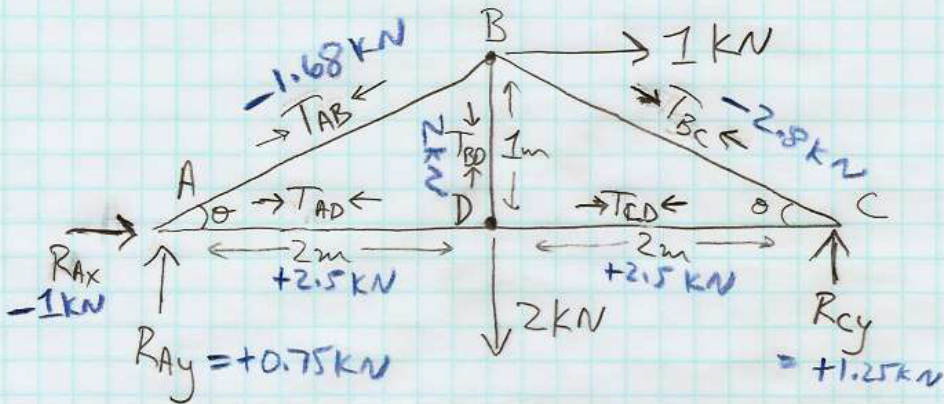 B
1 kN
-1.68 kN
TAB
TBD
2kN
1m
TBC
-2.8 kN
A
θ
TAD
D
TCD
θ
C
RAx
-1kN
2m
+2.5 kN
2m
+2.5 kN
2kN
RAy = +0.75kN
RCy
= +1.25kN